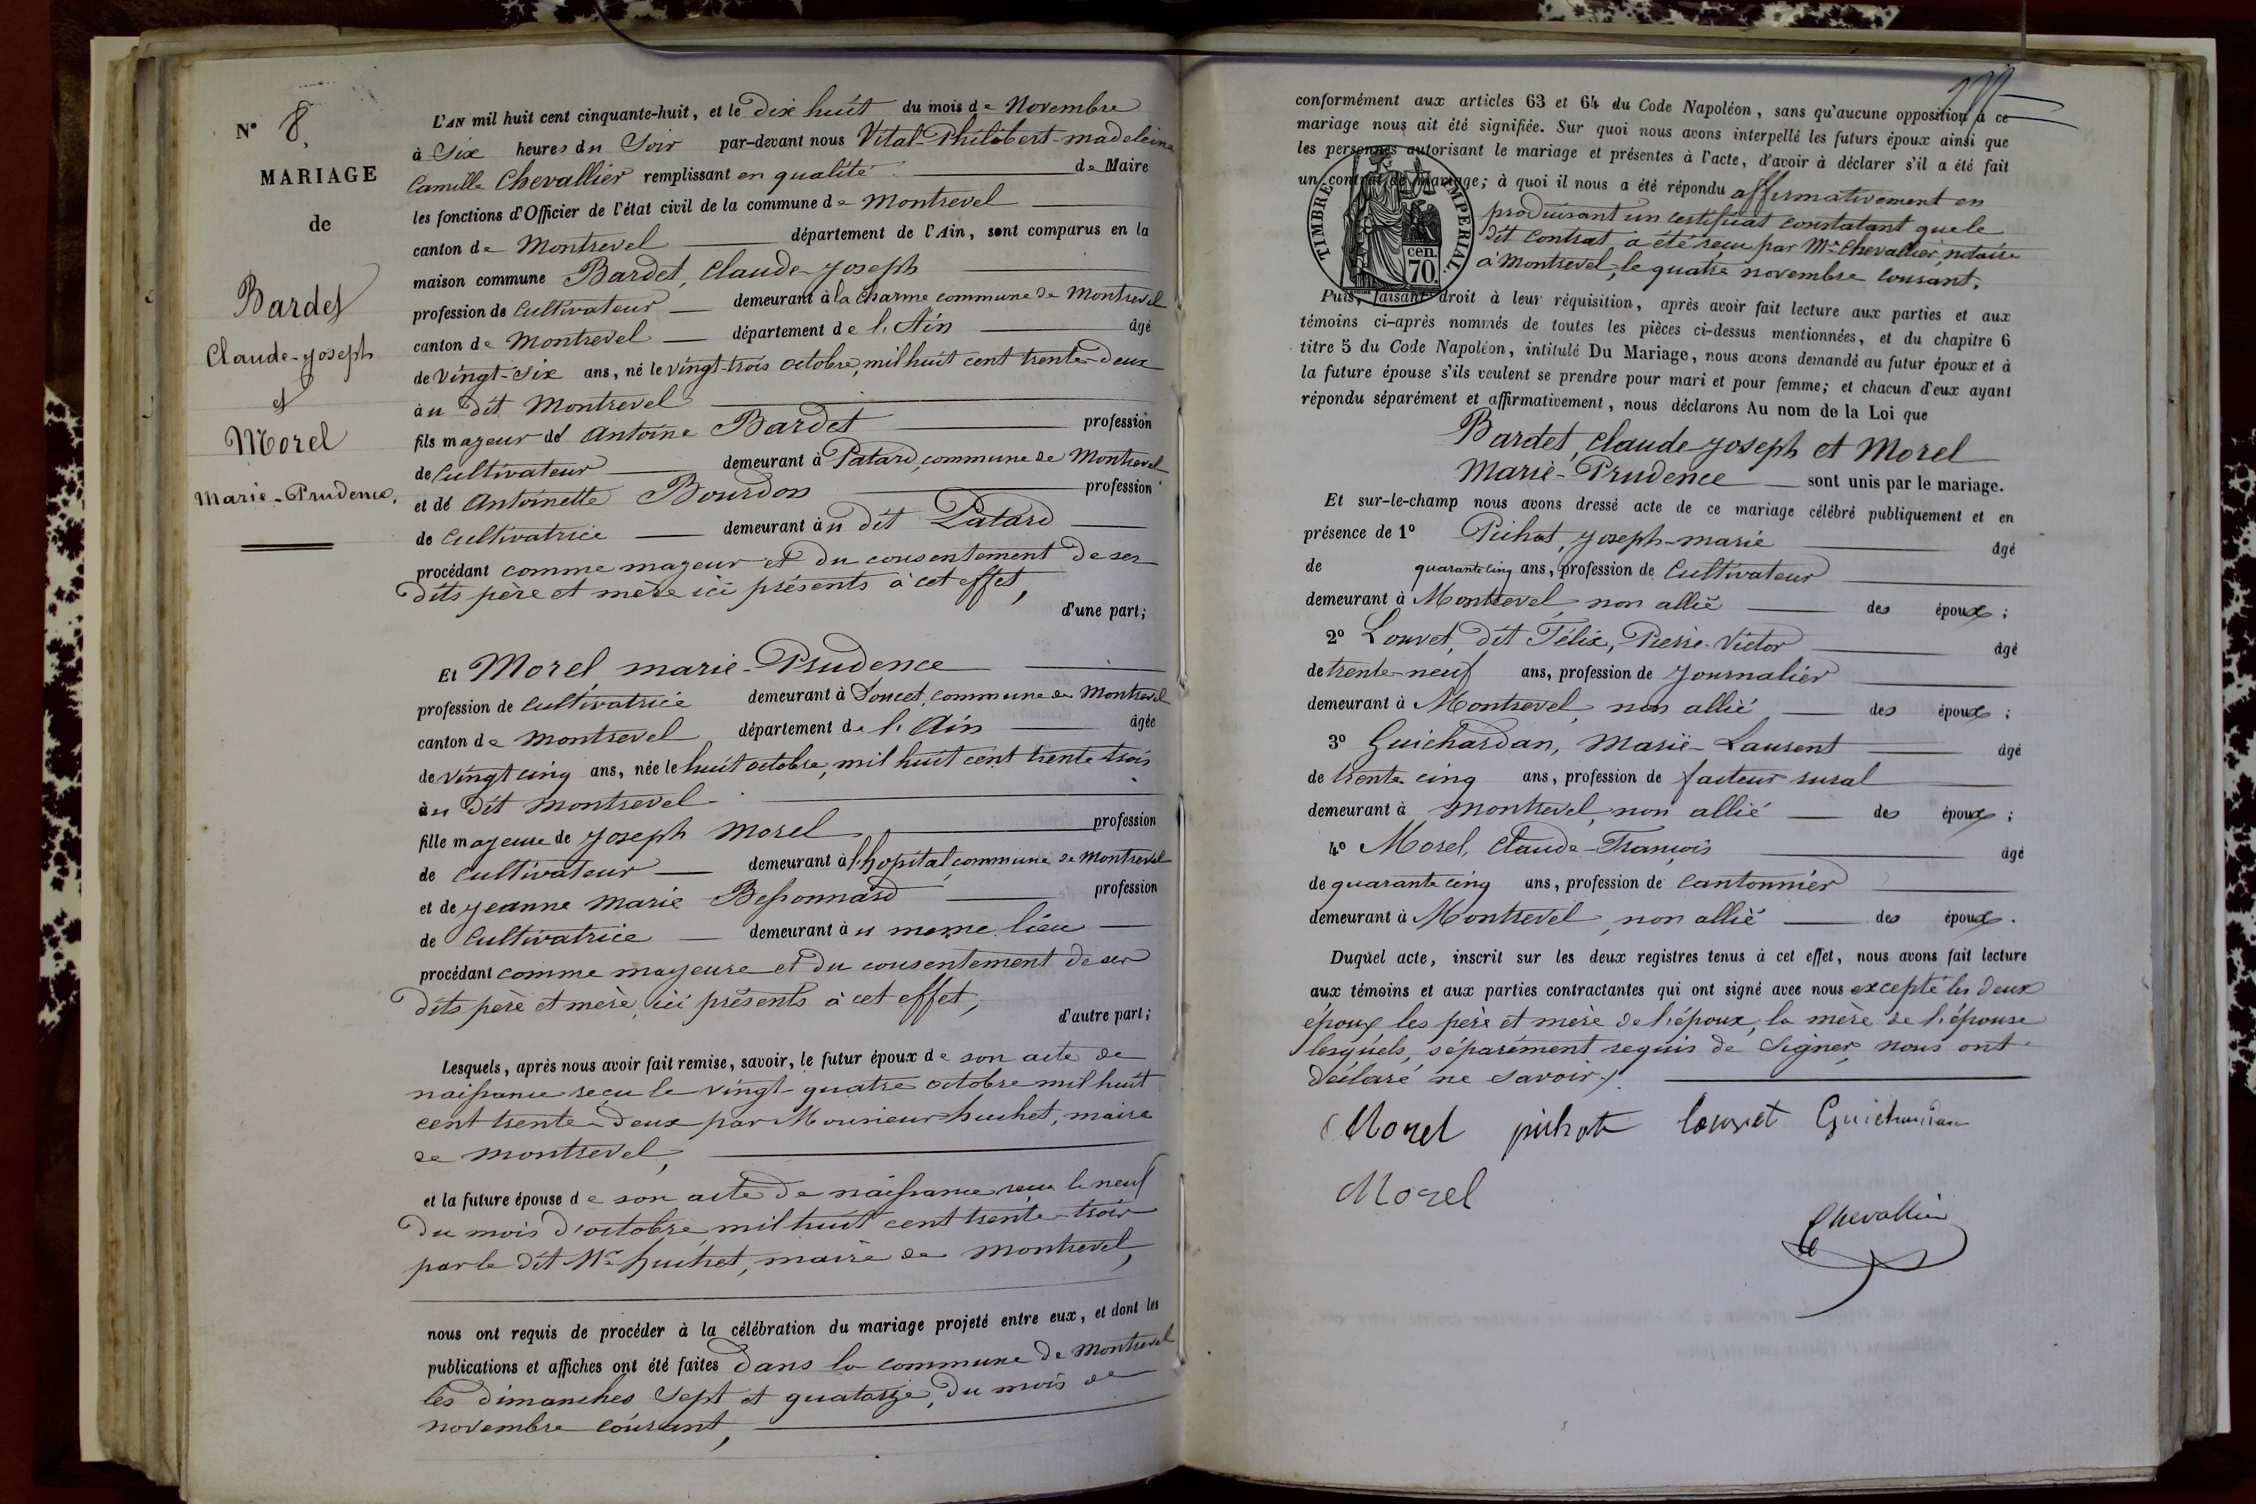 N° 8,
MARIAGE
de
Bardet
Claude-Joseph
et
Morel
Marie-Prudence.
L'AN mil huit cent cinquante-huit, et le Dix huit du mois de Novembre
à Six heures du Soir par-devant nous Vital-Philibert-madeleine
Camille Chevallier remplissant en qualité de Maire
les fonctions d'Officier de l'état civil de la commune de Montrevel
canton de Montrevel département de l'Ain, sont comparus en la
maison commune Bardet, Claude-Joseph
profession de Cultivateur demeurant à la Charme commune de Montrevel
canton de Montrevel département de l'Ain âgé
de Vingt-Six ans, né le vingt-trois octobre, mil huit cent trente-deux
au dit Montrevel
fils majeur de Antoine Bardet profession
de Cultivateur demeurant à Patard, commune de Montrevel
et de Antoinette Bourdon profession
de Cultivatrice demeurant au dit Patard
procédant comme majeur et du consentement de ses
dits père et mère ici présents à cet effet,
d'une part;
Et Morel, marie-Prudence
profession de Cultivatrice demeurant à Doucet, commune de Montrevel
canton de Montrevel département de l'Ain âgée
de vingt cinq ans, née le huit octobre, mil huit cent trente trois
au dit Montrevel
fille majeure de Joseph Morel profession
de Cultivateur demeurant à l'hopital, commune de Montrevel
et de Jeanne Marie Bessonnard profession
de Cultivatrice demeurant au meme lieu
procédant comme majeure et du consentement de ses
dits père et mère, ici présents à cet effet,
d'autre part;
Lesquels, après nous avoir fait remise, savoir, le futur époux de son acte de
naissance reçu le vingt-quatre octobre mil huit
cent trente-deux par Monsieur huchet, maire
de Montrevel,
et la future épouse de son acte de naissance reçu le neuf
du mois d'octobre, mil huit cent trente-trois
par le dit Mr huchet, maire de Montrevel,
nous ont requis de procéder à la célébration du mariage projeté entre eux, et dont les
publications et affiches ont été faites dans la commune de Montrevel
les dimanches Sept et quatorze, du mois de
novembre courant,
conformément aux articles 63 et 64 du Code Napoléon, sans qu'aucune opposition à ce
mariage nous ait été signifiée. Sur quoi nous avons interpellé les futurs époux ainsi que
les personnes autorisant le mariage et présentes à l'acte, d'avoir à déclarer s'il a été fait
un contrat de mariage; à quoi il nous a été répondu affirmativement en
produisant un certificat constatant que le
dit contrat a été reçu par Me Chevallier, notaire
à Montrevel, le quatre novembre courant.
TIMBRE IMPERIAL.
cen.
70.
Puis, faisant droit à leur réquisition, après avoir fait lecture aux parties et aux
témoins ci-après nommés de toutes les pièces ci-dessus mentionnées, et du chapitre 6
titre 5 du Code Napoléon, intitulé Du Mariage, nous avons demandé au futur époux et à
la future épouse s'ils veulent se prendre pour mari et pour femme; et chacun d'eux ayant
répondu séparément et affirmativement, nous déclarons Au nom de la Loi que
Bardet, Claude-Joseph et Morel
Marie-Prudence sont unis par le mariage.
Et sur-le-champ nous avons dressé acte de ce mariage célébré publiquement et en
présence de 1° Pichat, Joseph-marie âgé
de quarante cinq ans, profession de Cultivateur
demeurant à Montrevel, non allié des époux;
2° Louvet, dit Félix, Pierre-Victor âgé
de trente-neuf ans, profession de Journalier
demeurant à Montrevel, non allié des époux;
3° Guichardan, Marie-Laurent âgé
de trente cinq ans, profession de facteur rural
demeurant à Montrevel, non allié des époux;
4° Morel, Claude-François âgé
de quarante cinq ans, profession de Cantonnier
demeurant à Montrevel, non allié des époux.
Duquel acte, inscrit sur les deux registres tenus à cet effet, nous avons fait lecture
aux témoins et aux parties contractantes qui ont signé avec nous excepté les deux
époux, les père et mère de l'époux, la mère de l'épouse
lesquels, séparément requis de Signer, nous ont
déclaré ne savoir.
Morel pichat louvet Guichardan
Morel
Chevallier